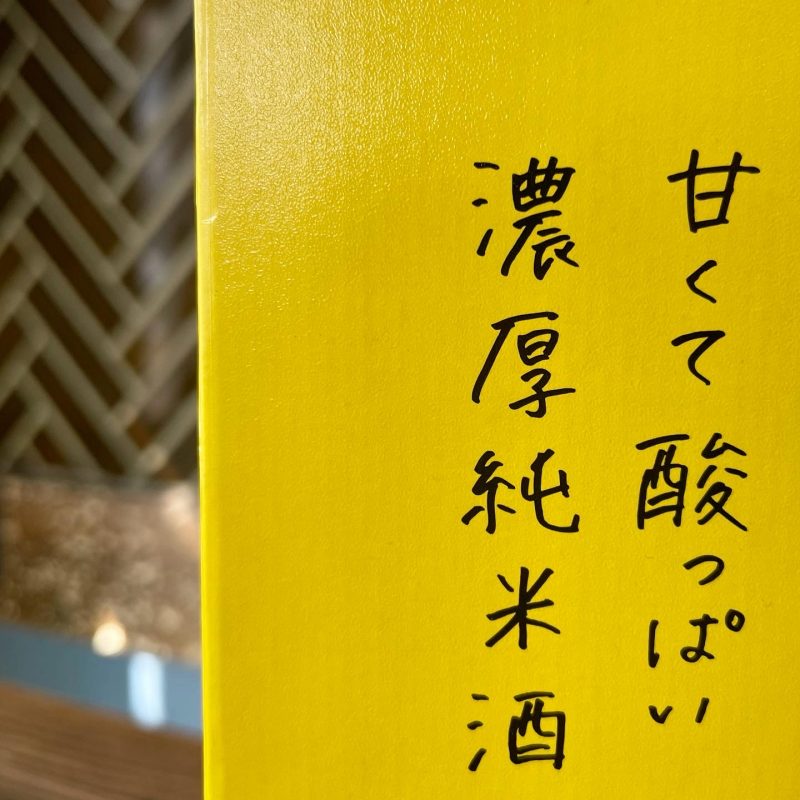 甘くて酸っぱい
濃厚純米酒